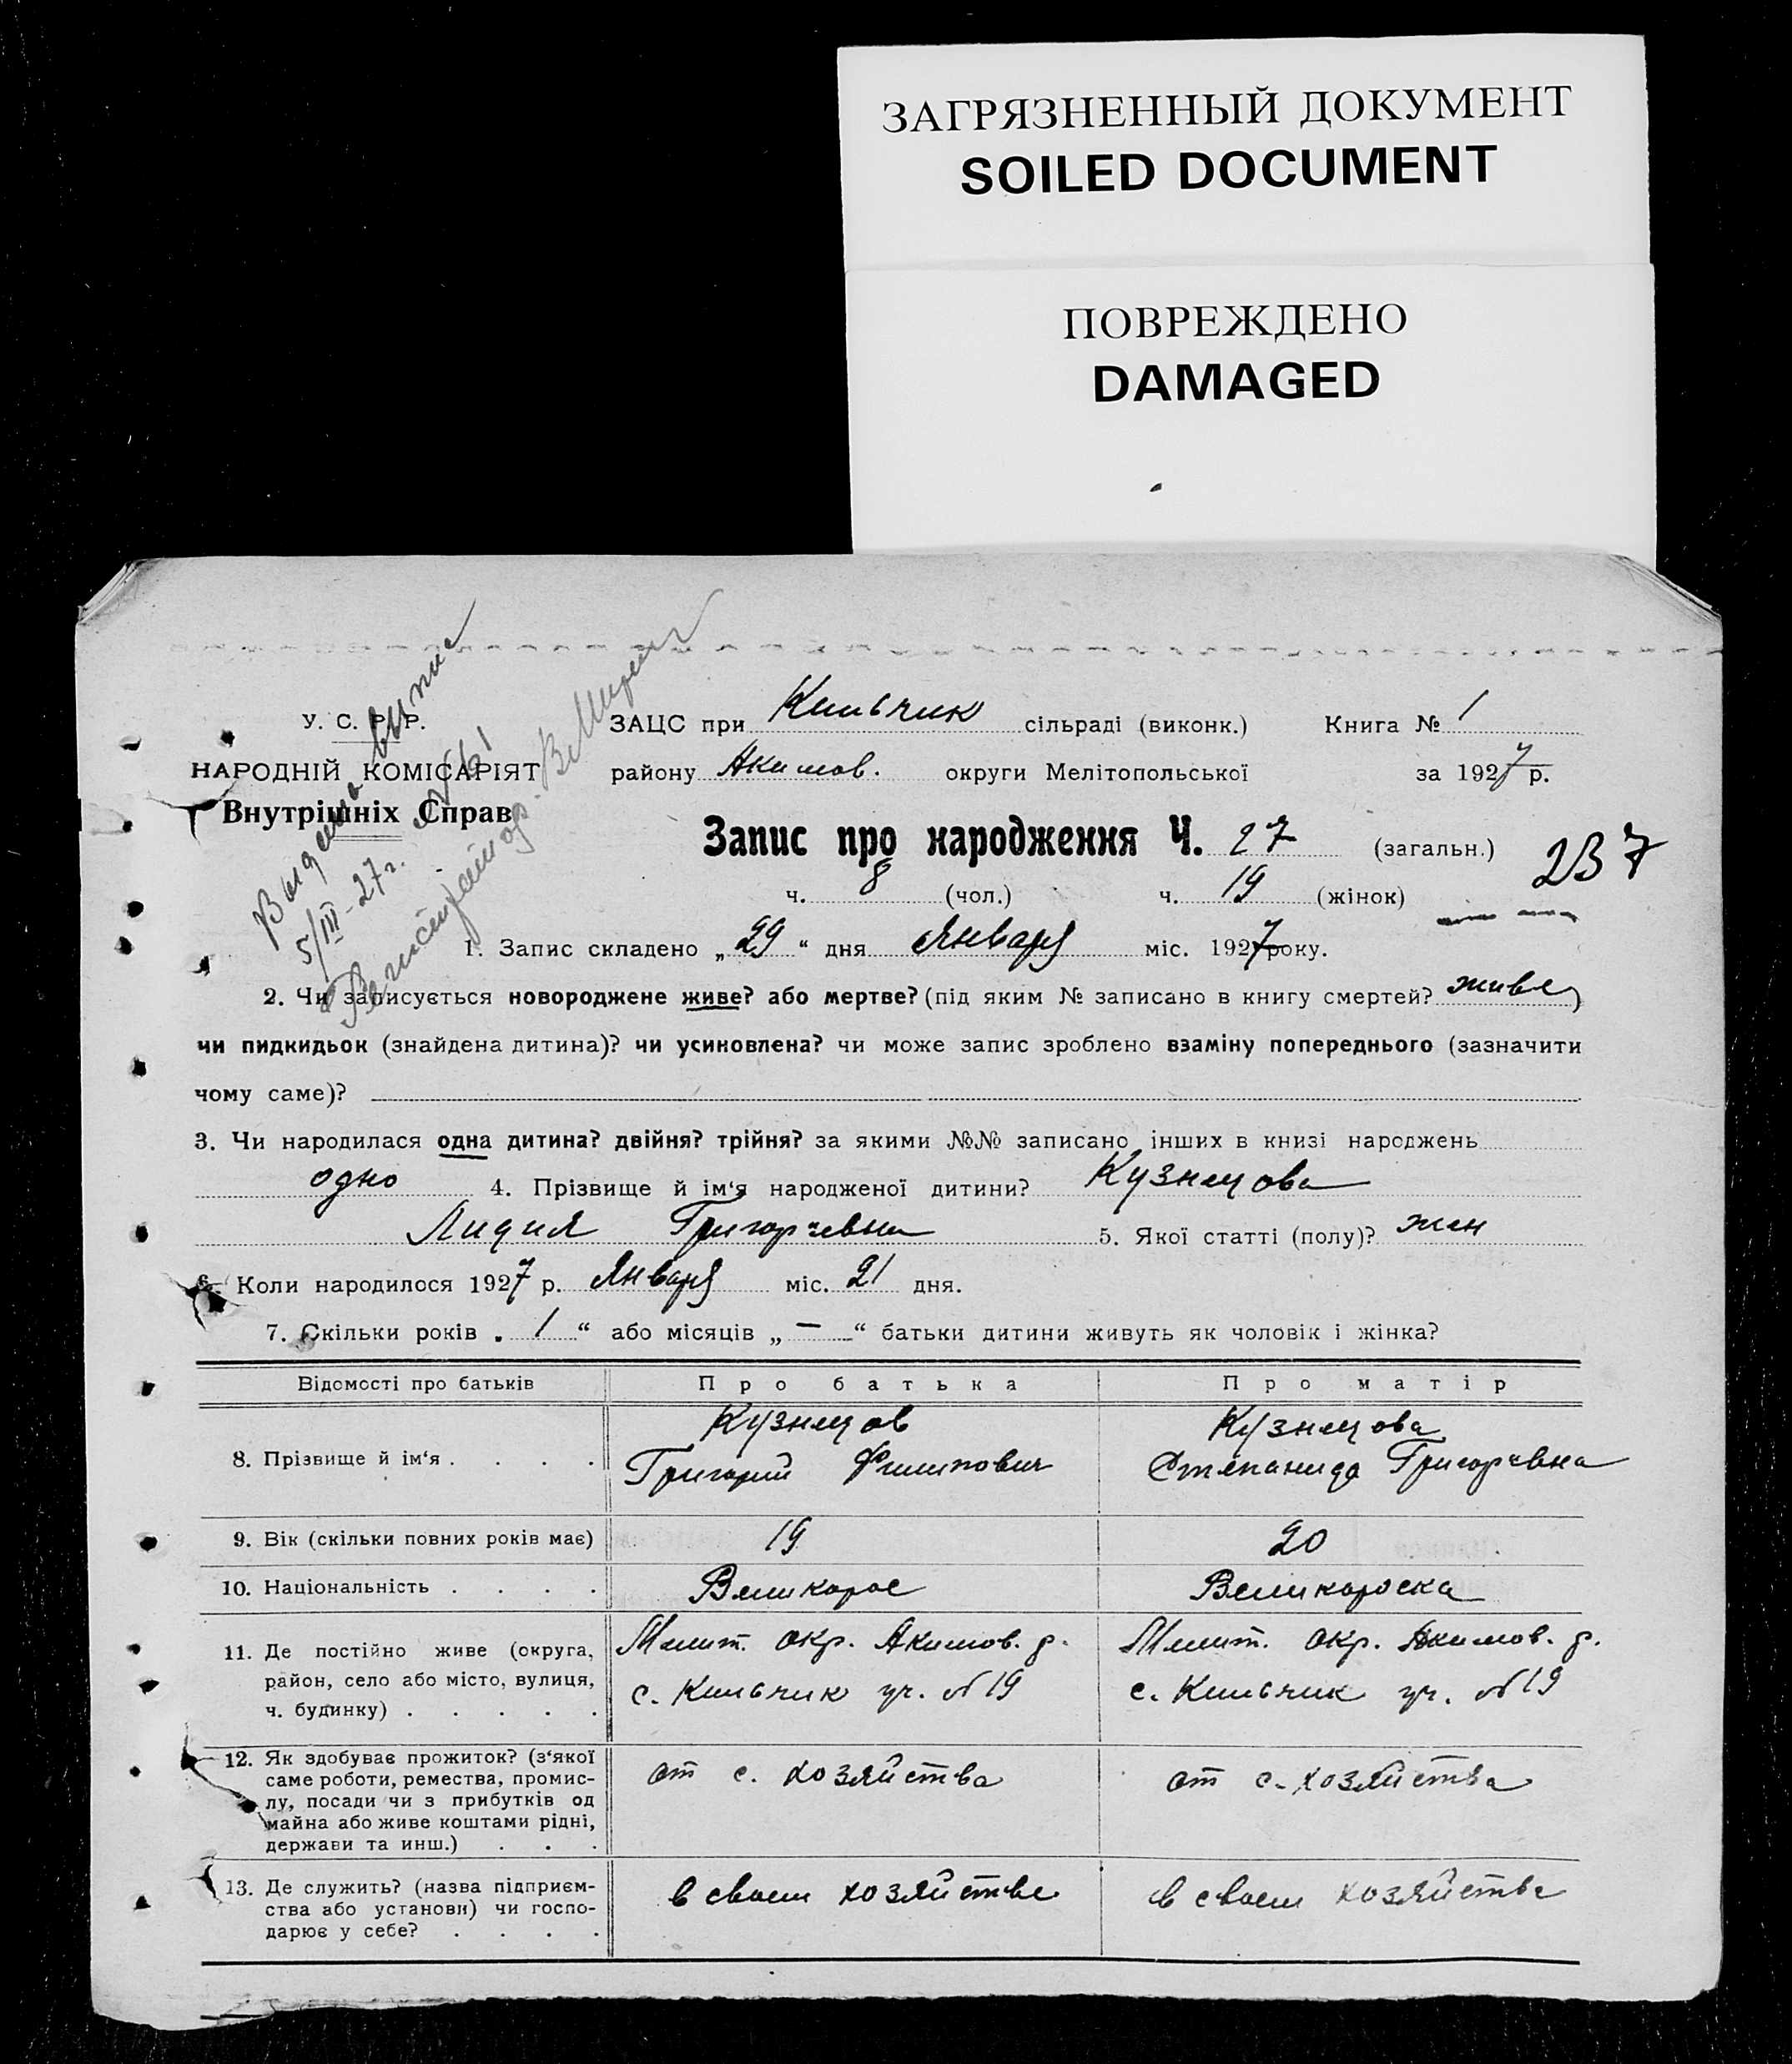 ЗАГРЯЗНЕННЫЙ ДОКУМЕНТ
SOILED DOCUMENT
ПОВРЕЖДЕНО
DAMAGED
У. С. Р. Р.
НАРОДНІЙ КОМІСАРІЯТ
Внутрішніх Справ
Выдана выпис
5/III-27 г. №61
ЗАЦС при Кильчик сільраді (виконк.) Книга № 1
району Акимов. округи Мелітопольської за 1927 р.
Запис про народження Ч. 27 (загальн.) 237
ч. 8 (чол.) ч. 19 (жінок)
1. Запис складено „29“ дня Января міс. 1927 року.
2. Чи записується новороджене живе? або мертве? (під яким № записано в книгу смертей? живе)
чи пидкидьок (знайдена дитина)? чи усиновлена? чи може запис зроблено взаміну попереднього (зазначити
чому саме)?
3. Чи народилася одна дитина? двійня? трійня? за якими №№ записано інших в книзі народжень
одно 4. Прізвище й ім‘я народженої дитини? Кузнецова
Лидия Григорьевна 5. Якої статті (полу)? жен
6. Коли народилося 1927 р. Января міс. 21 дня.
7. Скільки років „1“ або місяців „—“ батьки дитини живуть як чоловік і жінка?
Відомості про батьків Про батька Про матір
8. Прізвище й ім‘я . . . . Кузнецов Григорий Филипович Кузнецова Степанида Григорьевна
9. Вік (скільки повних років має) 19 20
10. Національність . . . . Великорос Великороска
11. Де постійно живе (округа, Мелит. окр. Акимов. р. Мелит. окр. Акимов. р.
район, село або місто, вулиця, с. Кильчик уч. №19 с. Кильчик уч. №19
ч. будинку) . . . . .
12. Як здобуває прожиток? (з‘якої от с. хозяйства от с. хозяйства
саме роботи, ремества, промис-
лу, посади чи з прибутків од
майна або живе коштами рідні,
держави та инш.) . . .
13. Де служить? (назва підприєм- в своем хозяйстве в своем хозяйстве
ства або установи) чи госпо-
дарює у себе? . . . .